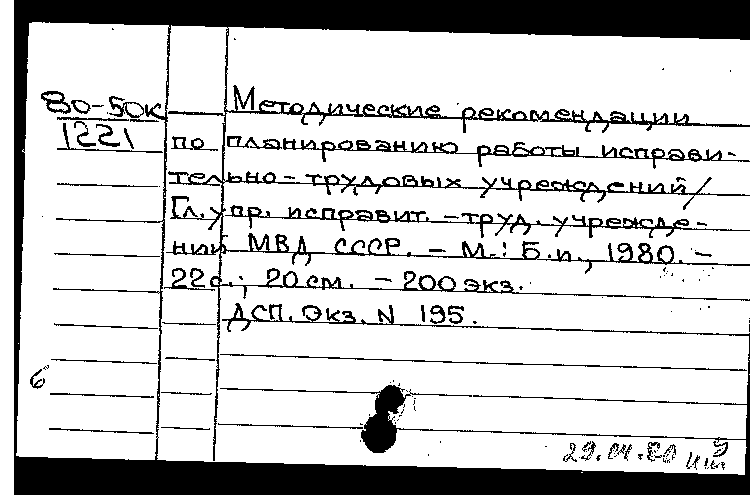 80-50к
1221
Методические рекомендации
по планированию работы исправи-
тельно-трудовых учреждений/
Гл. упр. исправит.-труд. учрежде-
ний МВД СССР. – М.: Б.и., 1980. –
22с.; 20см. – 200экз.
ДСП. Экз. N 195.
6
29.04.80